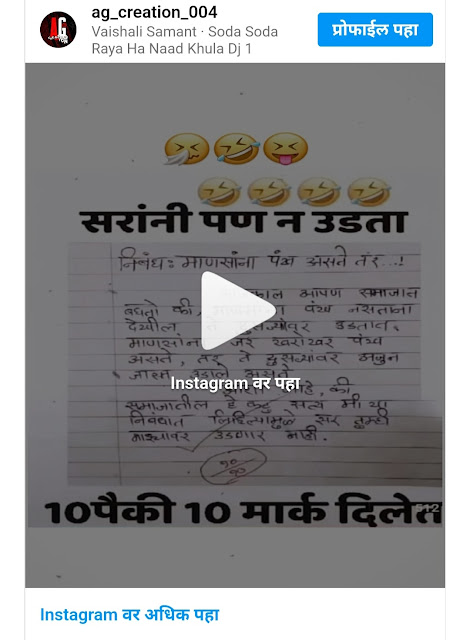 ag_creation_004
Vaishali Samant · Soda Soda
Raya Ha Naad Khula Dj 1
प्रोफाईल पहा
सरांनी पण न उडता
निबंध: माणसांना पंख असते तर...!
आपण समाजात
बघतो की, पंख नसताना
देखील, ते उडतात.
माणसांना जर खरोखर पंख
असते, तर ते दुसऱ्यांवर
जास्त उडाले असते
Instagram वर पहा
आहे, की
समाजातील हे कटु सत्य मी या
निबंधात लिहिल्यामुळे सर तुम्ही
माझ्यावर उडणार नाही.
10
10
10पैकी 10 मार्क दिलेत
Instagram वर अधिक पहा